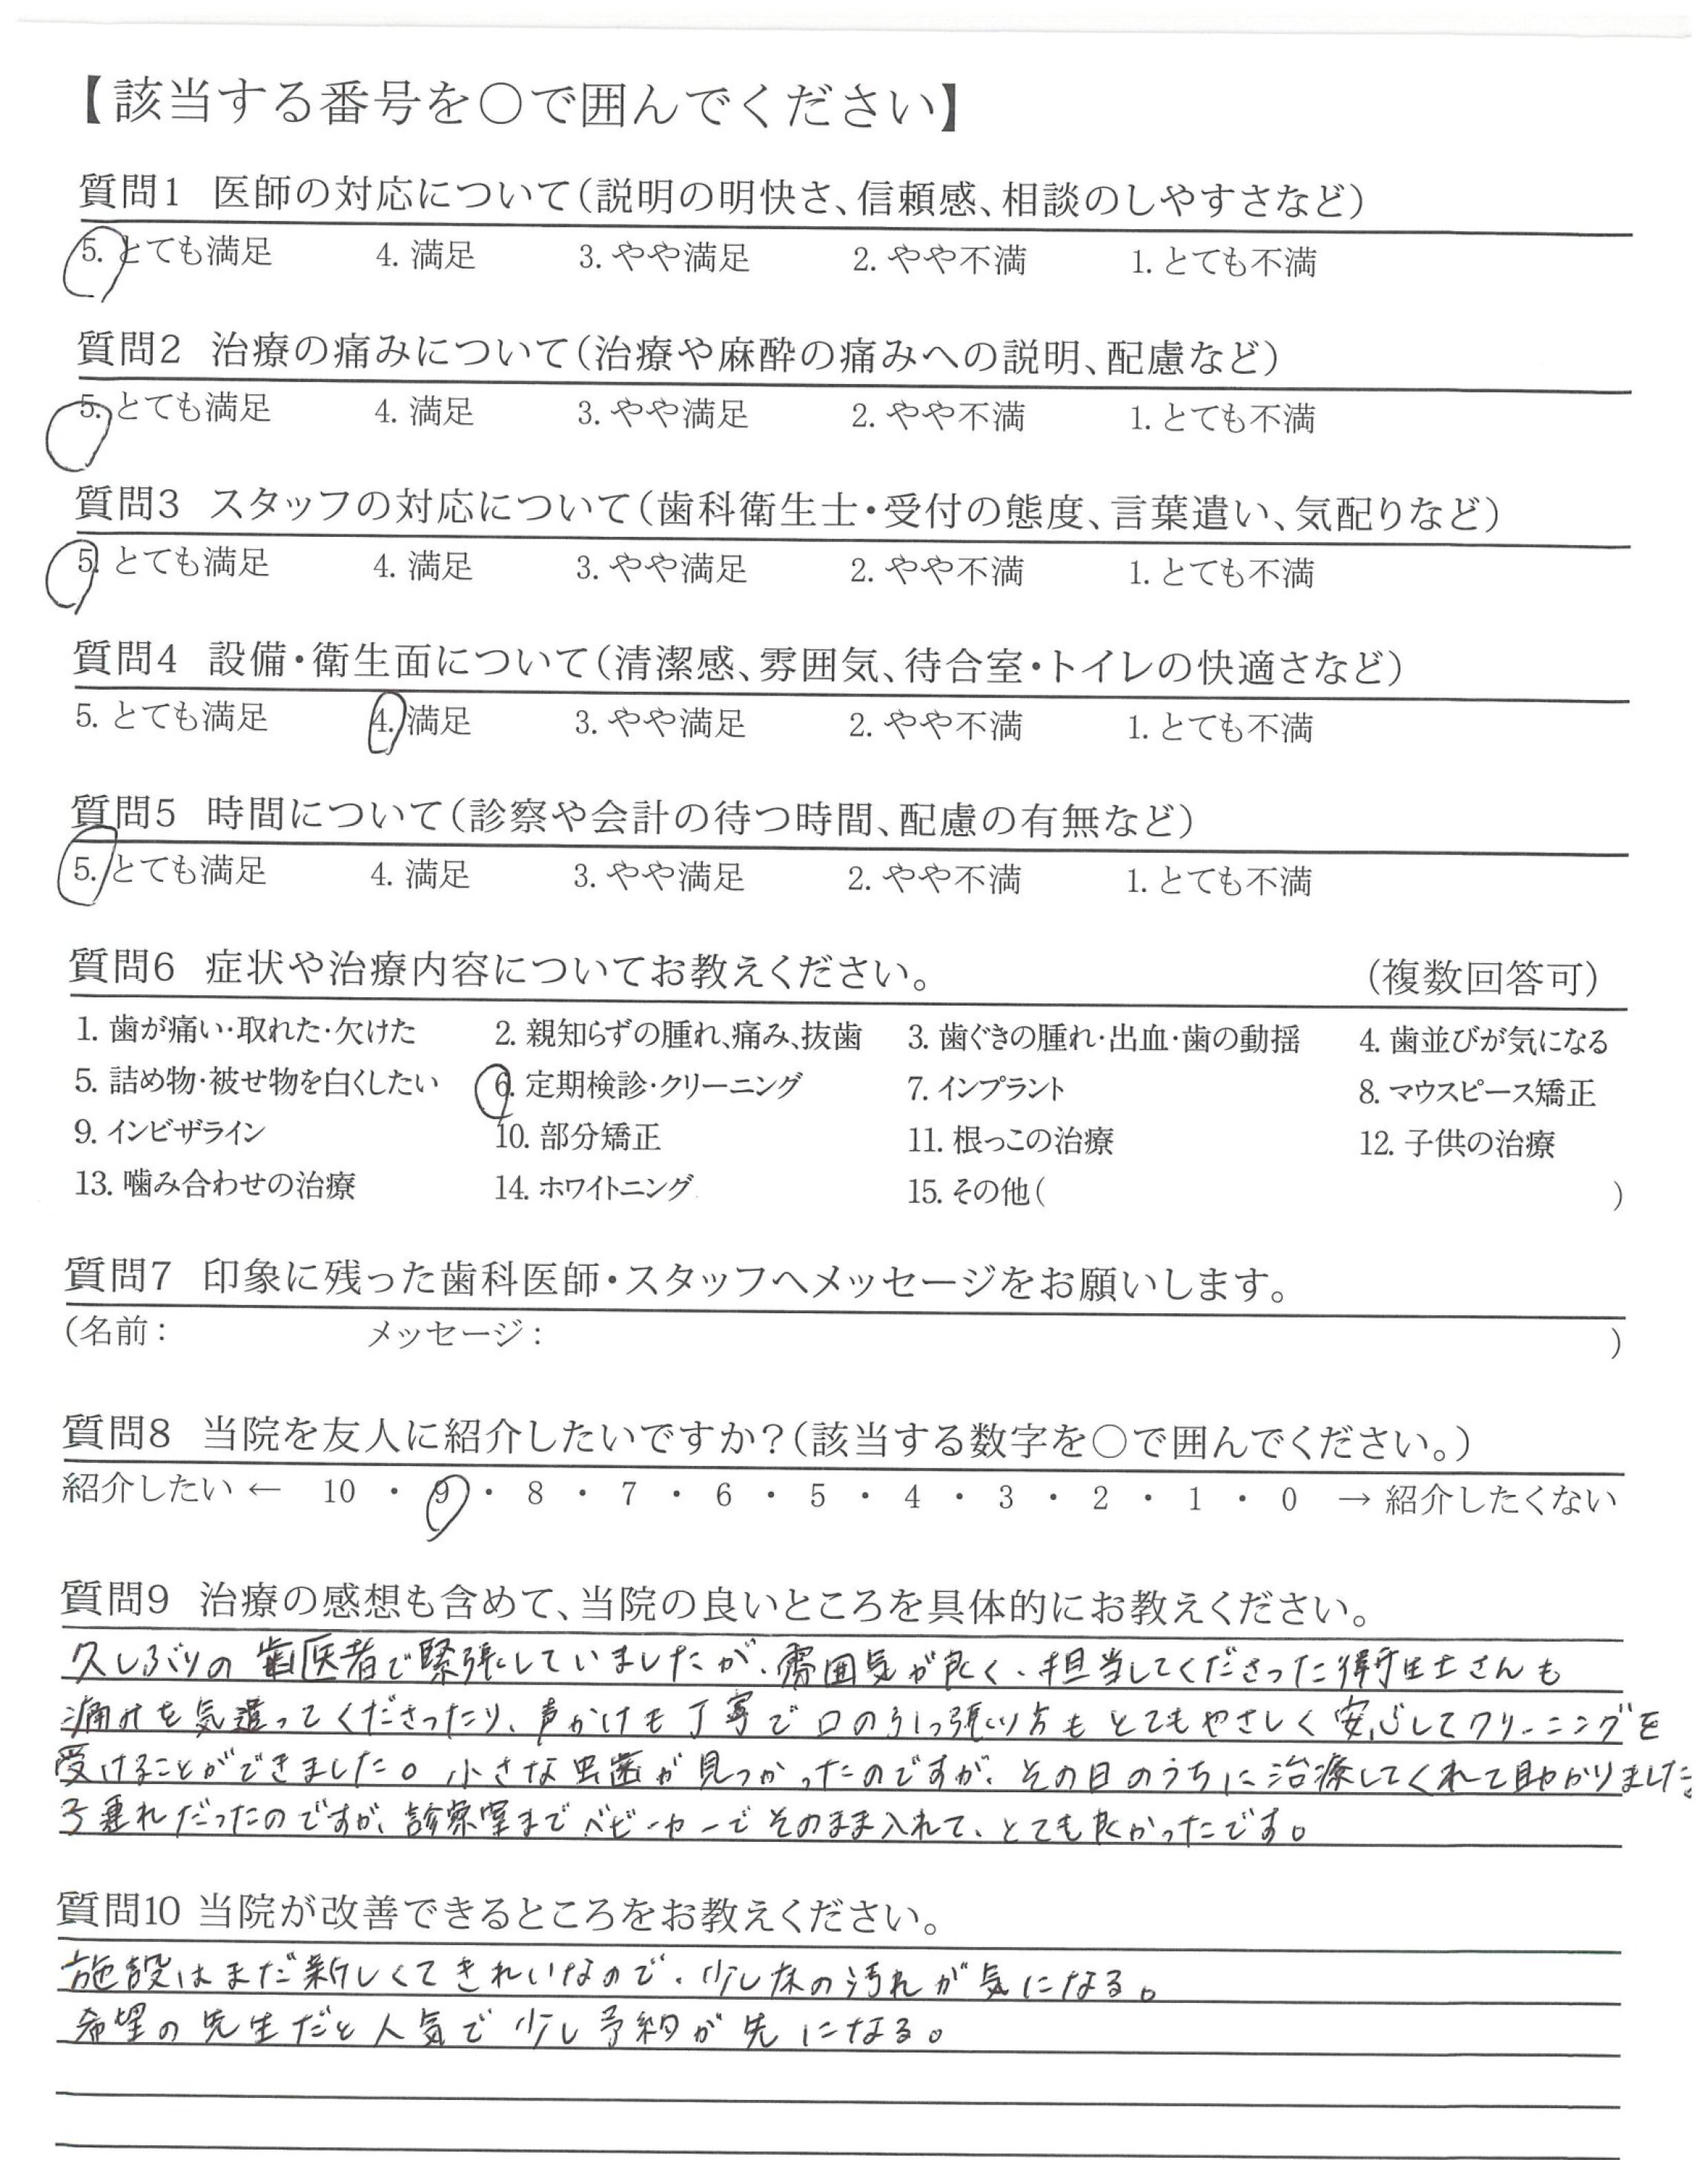 【該当する番号を○で囲んでください】
質問1 医師の対応について(説明の明快さ、信頼感、相談のしやすさなど)
5. とても満足 4. 満足 3. やや満足 2. やや不満 1. とても不満
質問2 治療の痛みについて(治療や麻酔の痛みへの説明、配慮など)
5. とても満足 4. 満足 3. やや満足 2. やや不満 1. とても不満
質問3 スタッフの対応について(歯科衛生士・受付の態度、言葉遣い、気配りなど)
5. とても満足 4. 満足 3. やや満足 2. やや不満 1. とても不満
質問4 設備・衛生面について(清潔感、雰囲気、待合室・トイレの快適さなど)
5. とても満足 4. 満足 3. やや満足 2. やや不満 1. とても不満
質問5 時間について(診察や会計の待つ時間、配慮の有無など)
5. とても満足 4. 満足 3. やや満足 2. やや不満 1. とても不満
質問6 症状や治療内容についてお教えください。 (複数回答可)
1. 歯が痛い・取れた・欠けた 2. 親知らずの腫れ、痛み、抜歯 3. 歯ぐきの腫れ・出血・歯の動揺 4. 歯並びが気になる
5. 詰め物・被せ物を白くしたい 6. 定期検診・クリーニング 7. インプラント 8. マウスピース矯正
9. インビザライン 10. 部分矯正 11. 根っこの治療 12. 子供の治療
13. 噛み合わせの治療 14. ホワイトニング 15. その他( )
質問7 印象に残った歯科医師・スタッフへメッセージをお願いします。
(名前: メッセージ: )
質問8 当院を友人に紹介したいですか?(該当する数字を○で囲んでください。)
紹介したい ← 10 ・ 9 ・ 8 ・ 7 ・ 6 ・ 5 ・ 4 ・ 3 ・ 2 ・ 1 ・ 0 → 紹介したくない
質問9 治療の感想も含めて、当院の良いところを具体的にお教えください。
久しぶりの歯医者で緊張していましたが、雰囲気が良く、担当してくださった衛生士さんも
痛みを気遣ってくださったり、声かけも丁寧で口の引っ張り方もとてもやさしく安心してクリーニングを
受けることができました。小さな虫歯が見つかったのですが、その日のうちに治療してくれて助かりました。
子連れだったのですが、診察室までベビーカーでそのまま入れて、とても良かったです。
質問10 当院が改善できるところをお教えください。
施設はまだ新しくてきれいなので、少し床の汚れが気になる。
希望の先生だと人気で少し予約が先になる。